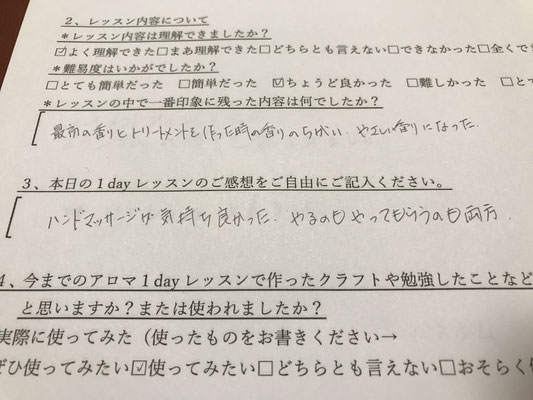 2、レッスン内容について
*レッスン内容は理解できましたか?
☑よく理解できた□まあ理解できた□どちらとも言えない□できなかった□全くで
*難易度はいかがでしたか?
□とても簡単だった □簡単だった ☑ちょうど良かった □難しかった □とて
*レッスンの中で一番印象に残った内容は何でしたか?
最初の香りとトリートメントを作った時の香りのちがい、やさしい香りになった.
3、本日の1dayレッスンのご感想をご自由にご記入ください。
ハンドマッサージが気持ち良かった. やるのもやってもらうのも両方.
4、今までのアロマ1dayレッスンで作ったクラフトや勉強したことなど
と思いますか?または使われましたか?
実際に使ってみた(使ったものをお書きください→
ぜひ使ってみたい☑使ってみたい□どちらとも言えない□おそらく